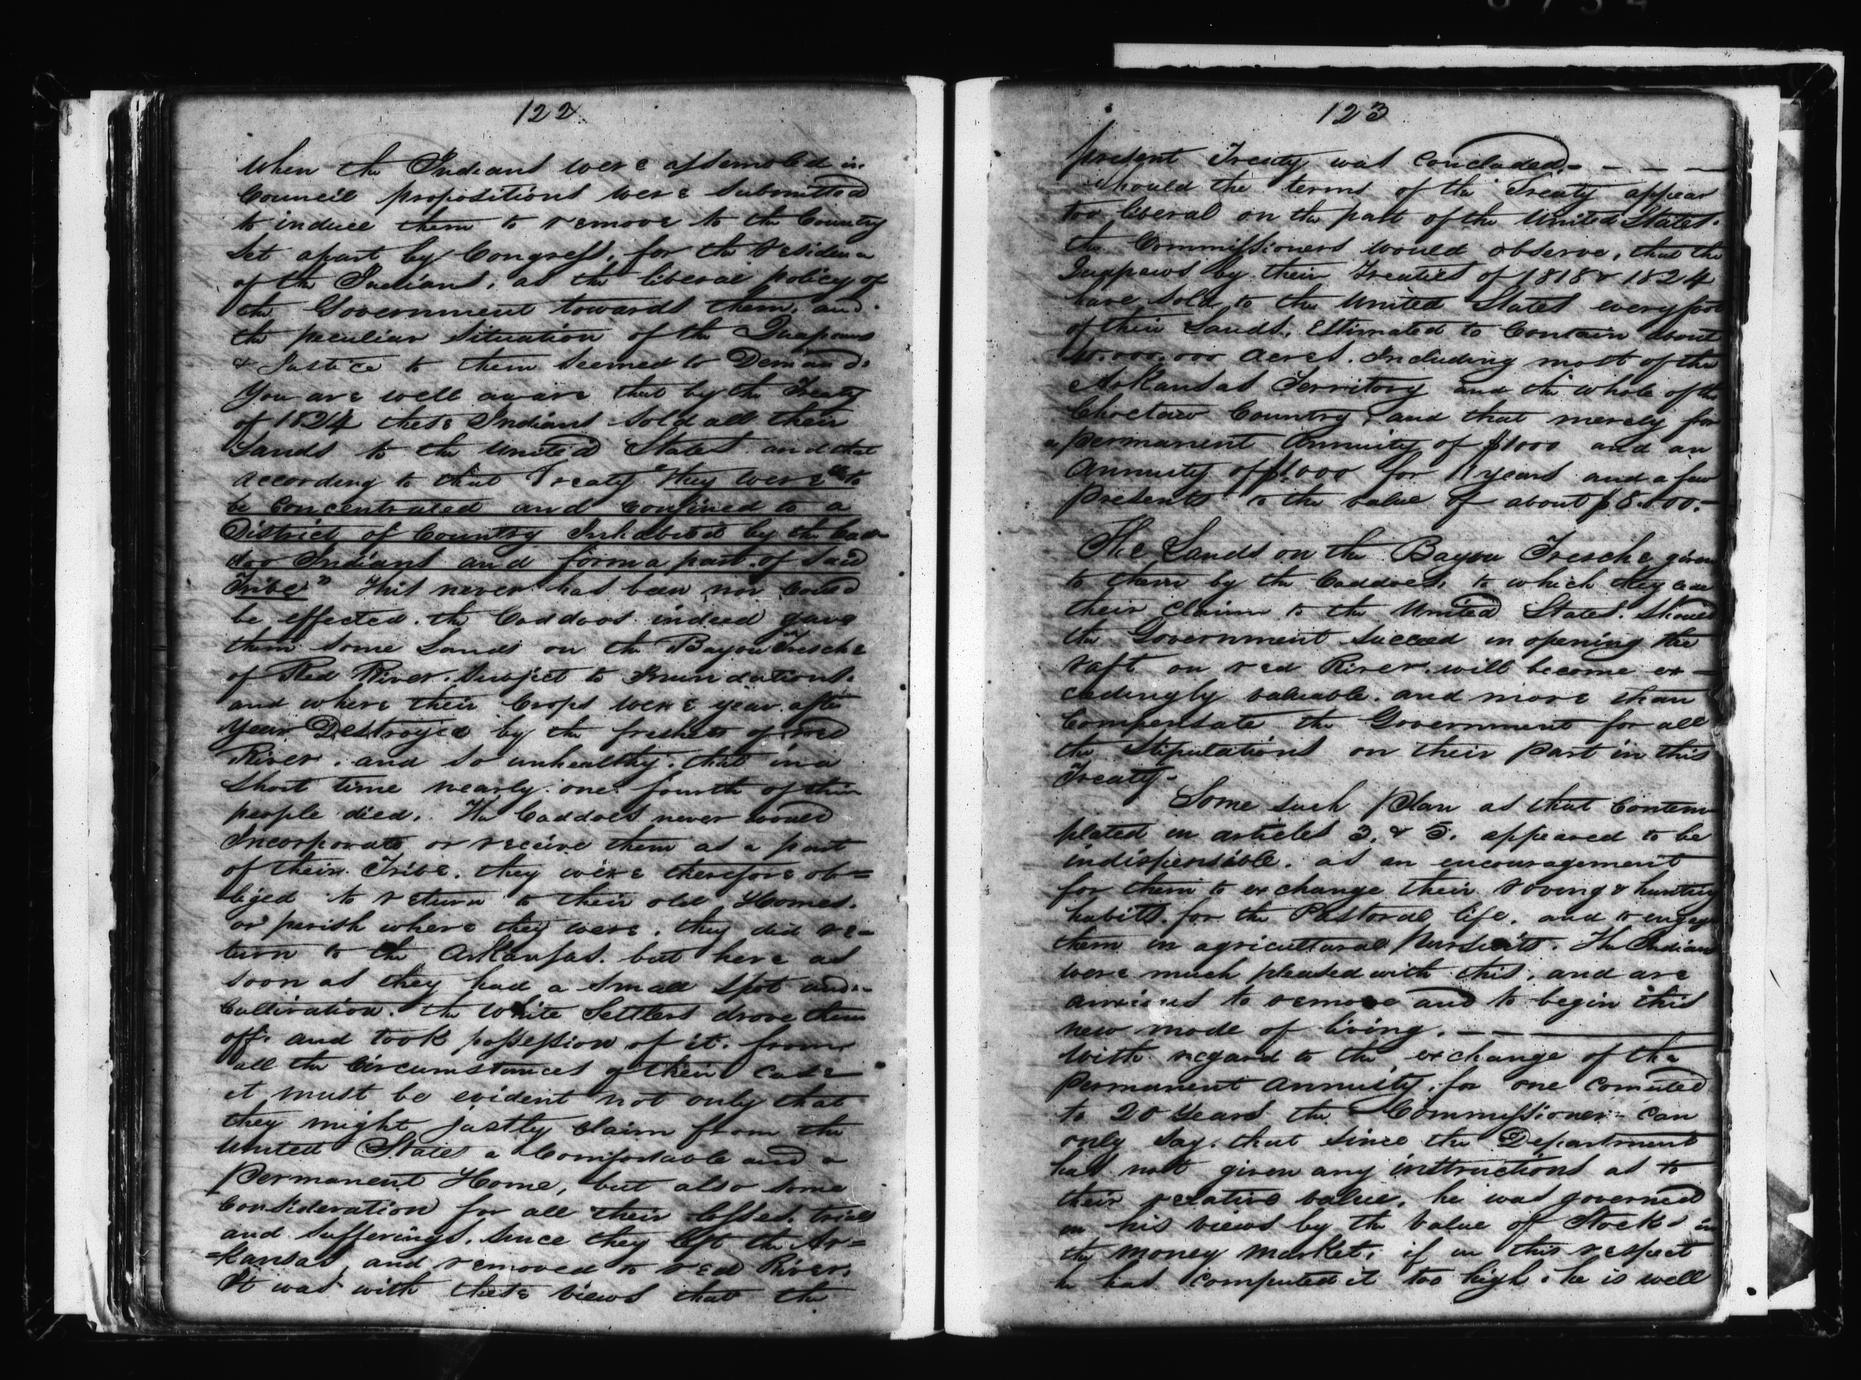 122
When the Indians were assembled in
Council propositions were submitted
to induce them to remove to the Country
set apart by Congress, for the residence
of the Indians, as the liberal policy of
the Government towards them, and
the peculiar situation of the Quapaws
& Justice to them seemed to Demand.
You are well aware that by the Treaty
of 1824 these Indians sold all their
Lands to the United States and that
according to that Treaty "they were to
be concentrated and confined to a
District of Country Inhabited by the Cad-
do Indians and form a part of said
Tribe" This never has been nor could
be effected. the Caddoes indeed gave
them some Lands on the Bayou Tresche
of Red River. Subject to Inundations.
and where their Crops were year after
year Destroyed by the freshets of red
River. and so unhealthy. that in a
short time nearly one fourth of their
people died. The Caddoes never would
Incorporate or receive them as a part
of their Tribe. they were therefore ob=
liged to return to their old Homes.
or perish where they were. they did re=
turn to the Arkansas. but here as
soon as they had a small spot under
Cultivation. the White Settlers drove them
off. and took possession of it. from
all the Circumstances of their Case
it must be evident not only that
they might justly claim from the
United States a Comfortable and a
Permanent Home, but also some
Consideration for all their losses. trials
and sufferings. since they left the Ar=
=kansas and removed to red River.
It was with these views that the
123
present Treaty was concluded. - - - -
Should the terms of the Treaty appear
too liberal on the part of the United States.
the Commissioners would observe, that the
Quapaws by their Treaties of 1818 & 1824
have sold to the United States every foot
of their Lands. Estimated to Contain about
000.000 Acres. Including most of the
Arkansas Territory and the whole of the
Choctaw Country. and that merely for
a permanent Annuity of $1000 and an
Annuity of $1.000 for 11 years and a few
presents to the value of about $8.000.-
The Lands on the Bayou Tresche given
to them by the Caddoes, to which they cede
their claim to the United States. Should
the Government succeed in opening the
raft on red River. will become ex-
ceedingly valuable. and more than
Compensate the Government for all
the Stipulations on their part in this
Treaty-
Some such Plan as that Contem
plated in articles 3. & 5. appeared to be
indispensible. as an encouragement
for them to exchange their roving & hunting
habits. for the Pastoral life. and to engage
them in agricultural Pursuits. The Indians
were much pleased with this, and are
anxious to remove and to begin this
new mode of living. - -
With regard to the exchange of the
permanent Annuity. for one comited
to 20 Years the Commissioner can
only say. that since the Department
has not given any instructions as to
their relative value. he was governed
in his views by the Value of Stocks in
the money market. if in this respect
he has computed it too high. he is well